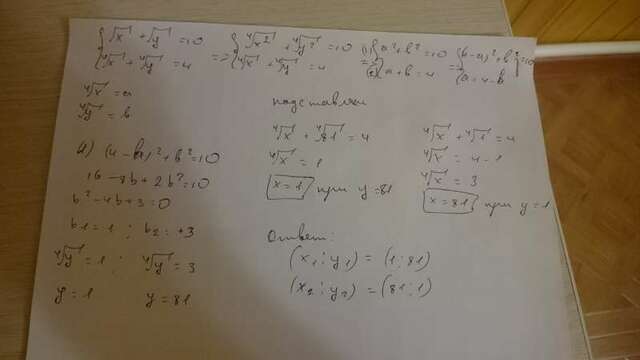 {√x + √y = 10
{⁴√x + ⁴√y = 4
=> {⁴√x² + ⁴√y² = 10
{⁴√x + ⁴√y = 4
1) {a² + b² = 10
2) {a + b = 4
{(4-b)² + b² = 10
{a = 4-b
⁴√x = a
⁴√y = b
1) (4-b)² + b² = 10
16 - 8b + 2b² = 10
b² - 4b + 3 = 0
b1 = 1 ; b2 = +3
⁴√y = 1 ; ⁴√y = 3
y = 1 y = 81
подставляем
⁴√x + ⁴√81 = 4
⁴√x = 1
x = 1 при y = 81
⁴√x + ⁴√1 = 4
⁴√x = 4 - 1
⁴√x = 3
x = 81 при y = 1
Ответ:
(x1 ; y1) = (1 ; 81)
(x2 ; y2) = (81 ; 1)